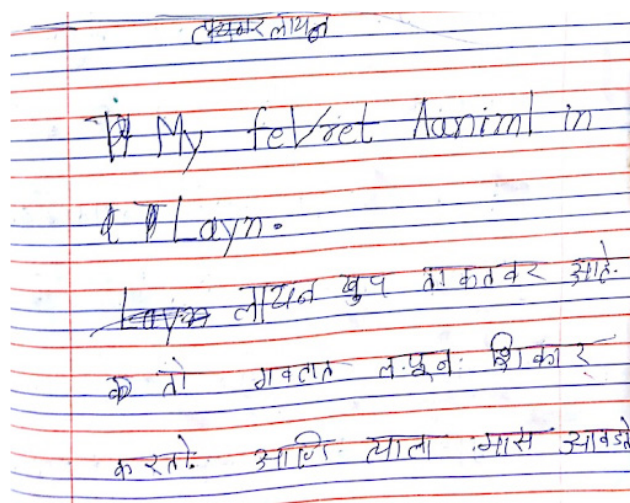 टायगर लायन
My feVret Aaniml in
Layn.
लायन खुप ताकतवर आहे.
तो गवतात लपून शिकार
करतो. आणि त्याला मास आवडते